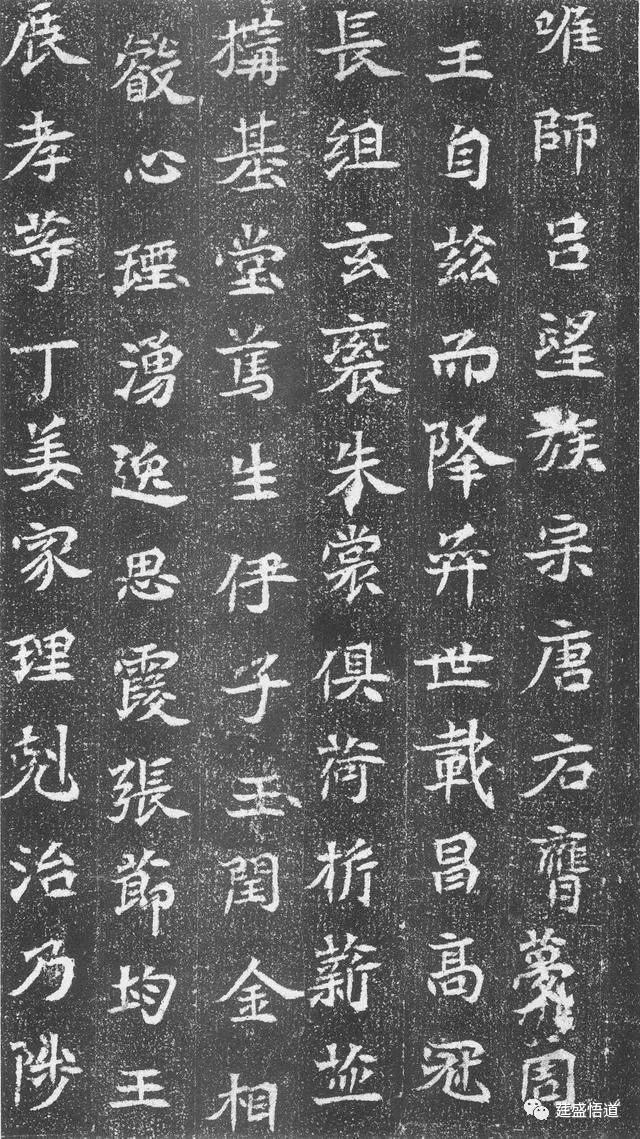 唯師吕望族宗唐右膺夢周
王自兹而降弈世載昌高冠
長组玄衮朱裳俱荷析薪並
搆基堂篤生伊子玉閏金相
叡心湧逸思霞張節均王
展孝等丁姜家理剋治乃陟
廷盛悟道